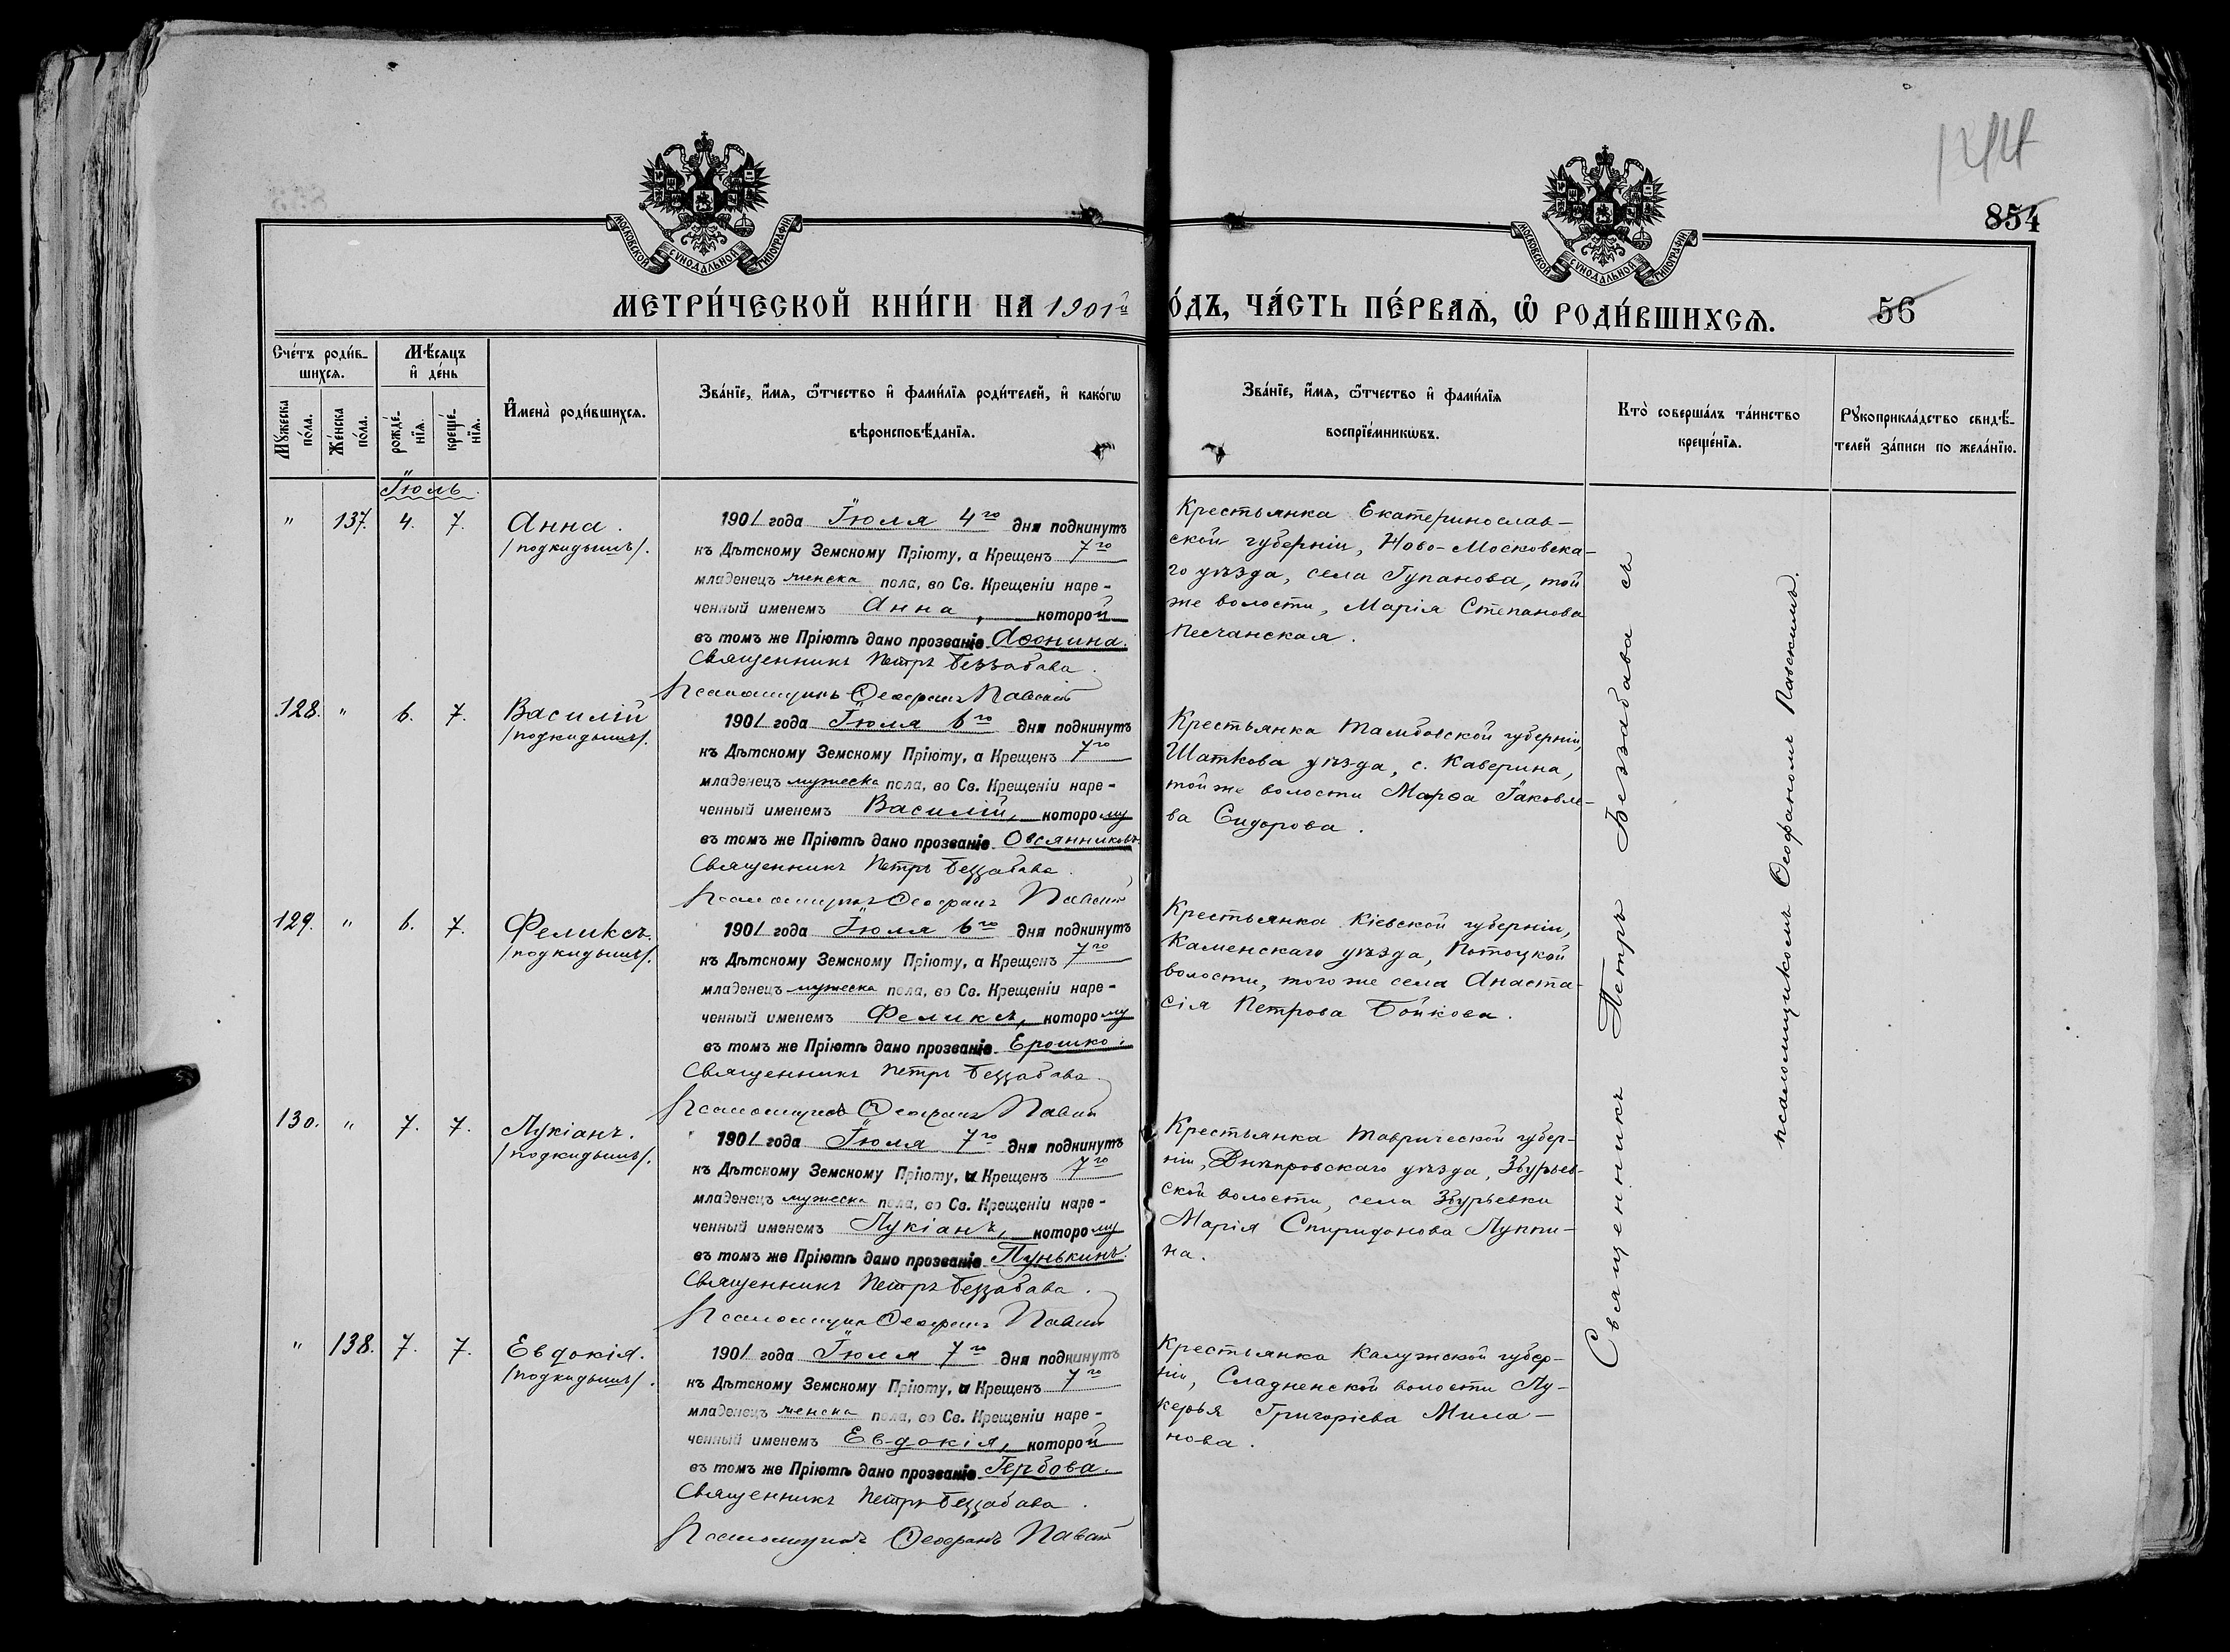 144
854
МОСКОВСКОЙ СѴНОДАЛЬНОЙ ТИПОГРАФІИ
МОСКОВСКОЙ СѴНОДАЛЬНОЙ ТИПОГРАФІИ
МЕТРИ́ЧЕСКОЙ КНИ́ГИ НА 1901й
О́ДЪ, ЧА́СТЬ ПЕ́РВАѦ, Ѡ҆ РОДИ́ВШИХСѦ.
56
Сче́тъ роди́в-
шихсѧ.
Мѣ́сѧцъ
и҆ де́нь
Мꙋ́жеска
по́ла.
Же́нска
по́ла.
рожде́-
нїѧ.
креще́-
нїѧ.
И҆мена̀ роди́вшихсѧ.
Зва́нїе, и҆́мѧ, ѻ҆́тчество и҆ фами́лїѧ роди́телей, и҆ како́гѡ
вѣроисповѣ́данїѧ.
Зва́нїе, и҆́мѧ, ѻ҆́тчество и҆ фами́лїѧ
воспрїе́мникѡвъ.
Кто̀ соверша́лъ та́инство
креще́нїѧ.
Рꙋкоприкла́дство свидѣ́-
телей за́писи по жела́нїю.
Іюль.
" 137. 4. 7. Анна.
/подкидышъ/.
1901 года Іюля 4го дня подкинутъ
къ Дѣтскому Земскому Пріюту, а Крещенъ 7го
младенецъ женска пола, во Св. Крещеніи наре-
ченный именемъ Анна, которой
въ томъ же Пріютѣ дано прозваніе Аѳонина.
Священникъ Петръ Беззабава.
Псаломщикъ Ѳеофанъ Павскій
Крестьянка Екатеринослав-
ской губерніи, Ново-Московска-
го уѣзда, села Гупанова, той
же волости, Марія Степанова
Песчанская.
128. " 6. 7. Василій
/подкидышъ/.
1901 года Іюля 6го дня подкинутъ
къ Дѣтскому Земскому Пріюту, а Крещенъ 7го
младенецъ мужеска пола, во Св. Крещеніи наре-
ченный именемъ Василій, которому
въ томъ же Пріютѣ дано прозваніе Овсянниковъ.
Священникъ Петръ Беззабава.
Псаломщикъ Ѳеофанъ Павскій
Крестьянка Тамбовской губерніи,
Шаткова уѣзда, с. Каверина,
той же волости Марѳа Іаковле-
ва Сидорова.
129. " 6. 7. Феликсъ.
/подкидышъ/.
1901 года Іюля 6го дня подкинутъ
къ Дѣтскому Земскому Пріюту, а Крещенъ 7го
младенецъ мужеска пола, во Св. Крещеніи наре-
ченный именемъ Феликсъ, которому
въ томъ же Пріютѣ дано прозваніе Ерошко.
Священникъ Петръ Беззабава.
Псаломщикъ Ѳеофанъ Павскій
Крестьянка Кіевской губерніи,
Каменскаго уѣзда, Потоцкой
волости, того же села Анаста-
сія Петрова Бойкова.
130. " 7. 7. Лукіанъ.
/подкидышъ/.
1901 года Іюля 7го дня подкинутъ
къ Дѣтскому Земскому Пріюту, а Крещенъ 7го
младенецъ мужеска пола, во Св. Крещеніи наре-
ченный именемъ Лукіанъ, которому
въ томъ же Пріютѣ дано прозваніе Пунькинъ.
Священникъ Петръ Беззабава.
Псаломщикъ Ѳеофанъ Павскій
Крестьянка Таврической губер-
ніи, Днѣпровскаго уѣзда, Збурьев-
ской волости, села Збурьевки
Марія Спиридонова Луппи-
на.
" 138. 7. 7. Евдокія.
/подкидышъ/.
1901 года Іюля 7го дня подкинутъ
къ Дѣтскому Земскому Пріюту, а Крещенъ 7го
младенецъ женска пола, во Св. Крещеніи наре-
ченный именемъ Евдокія, которой
въ томъ же Пріютѣ дано прозваніе Гербова.
Священникъ Петръ Беззабава.
Псаломщикъ Ѳеофанъ Павскій
Крестьянка Калужской губер-
ніи, Сладненской волости Лу-
керья Григоріева Мила-
нова.
Священникъ Петръ Беззабава съ
псаломщикомъ Ѳеофаномъ Павскимъ.